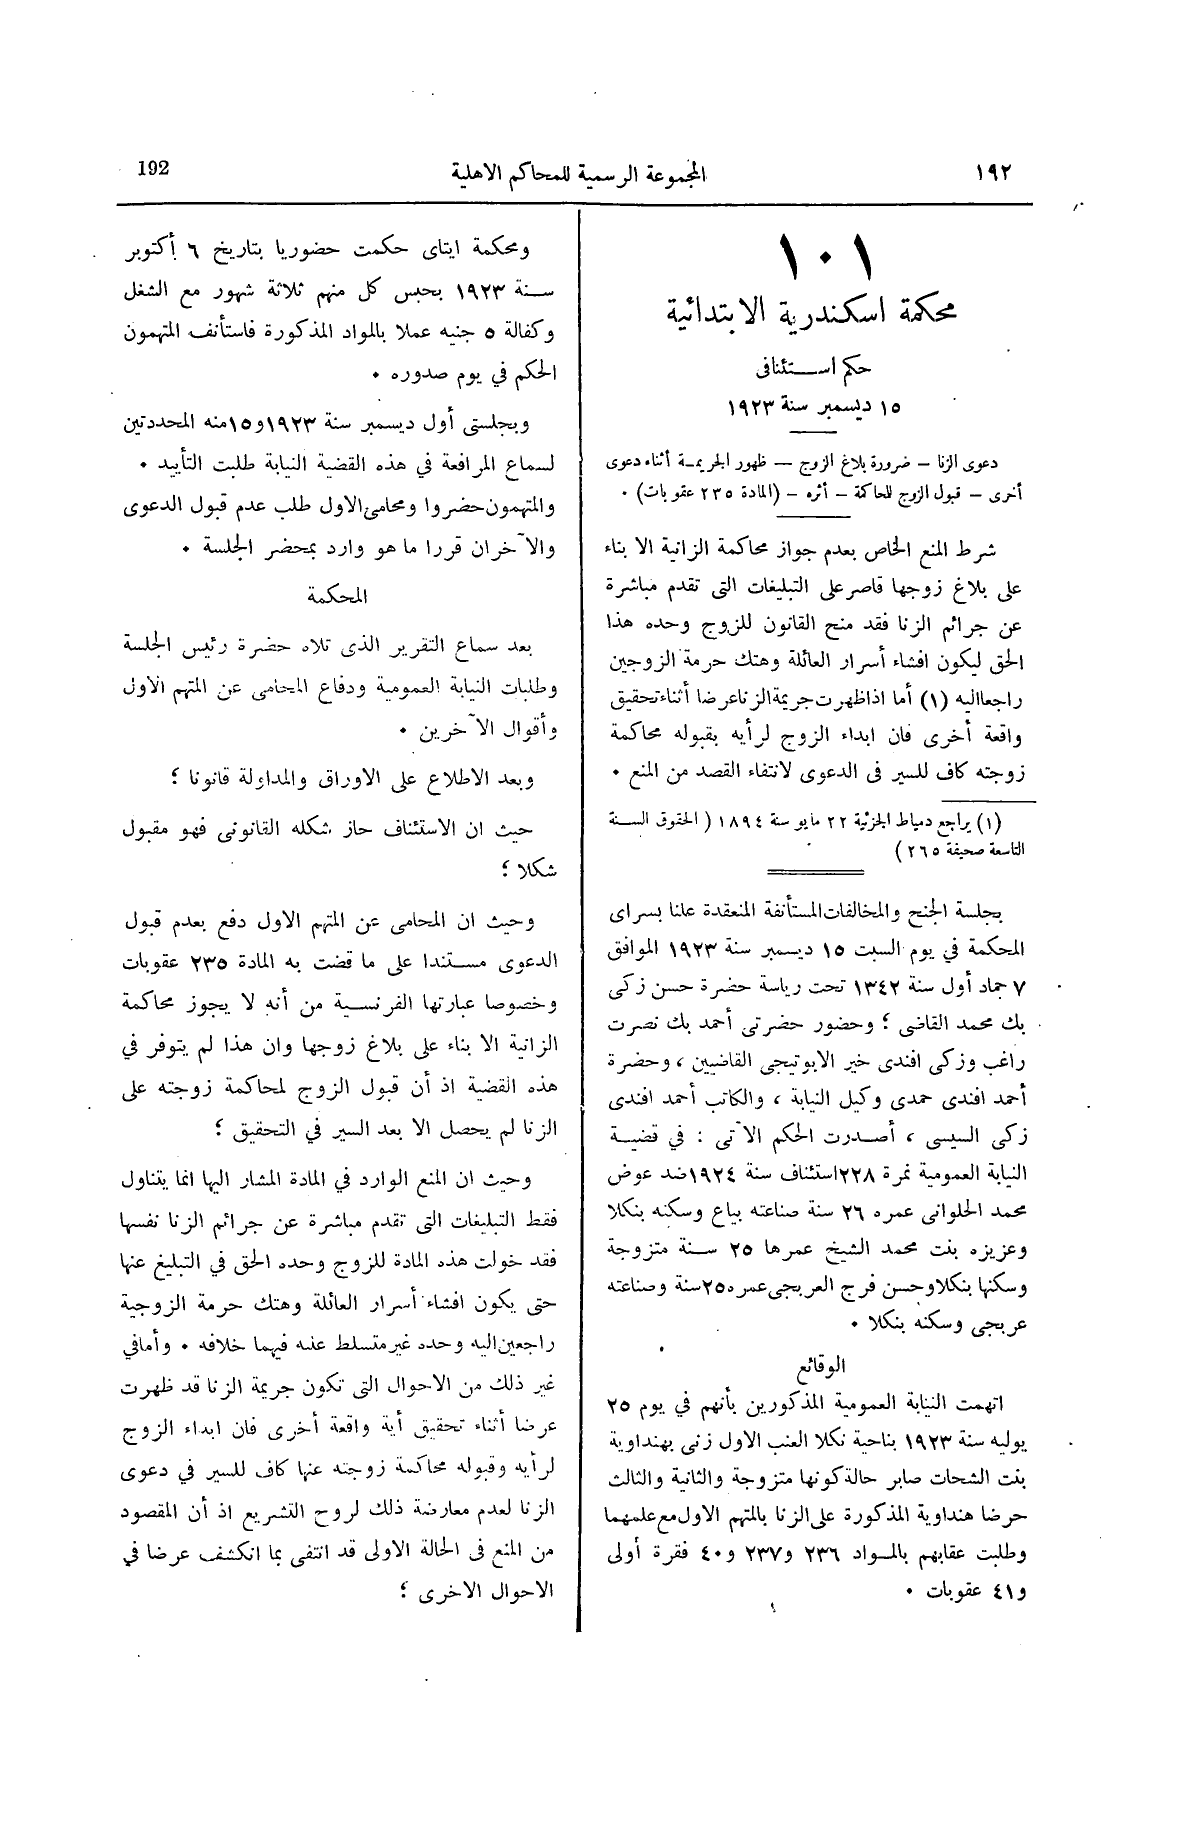 192
المجموعة الرسمية للمحاكم الاهلية
١٩٢
١٠١
محكمة اسكندرية الابتدائية
حكم استئنافى
١٥ ديسمبر سنة ١٩٢٣
دعوى الزنا — ضرورة بلاغ الزوج — ظهور الجريمة أثناء دعوى
أخرى — قبول الزوج للمحاكمة — أثره — (المادة ٢٣٥ عقوبات) ٠
شرط المنع الخاص بعدم جواز محاكمة الزانية الا بناء
على بلاغ زوجها قاصر على التبليغات التى تقدم مباشرة
عن جرائم الزنا فقد منح القانون للزوج وحده هذا
الحق ليكون افشاء أسرار العائلة وهتك حرمة الزوجين
راجعا اليه (١) أما اذا ظهرت جريمة الزنا عرضا أثناء تحقيق
واقعة أخرى فان ابداء الزوج لرأيه بقبوله محاكمة
زوجته كاف للسير فى الدعوى لانتفاء القصد من المنع ٠
(١) يراجع دمياط الجزئية ٢٢ مايو سنة ١٨٩٤ (الحقوق السنة
التاسعة صحيفة ٢٦٥)
بجلسة الجنح والمخالفات المستأنفة المنعقدة علنا بسراى
المحكمة في يوم السبت ١٥ ديسمبر سنة ١٩٢٣ الموافق
٧ جماد أول سنة ١٣٤٢ تحت رياسة حضرة حسن زكى
بك محمد القاضى ؛ وحضور حضرتى أحمد بك نصرت
راغب وزكى افندى خير الابوتيجى القاضيين ، وحضرة
أحمد افندى حمدى وكيل النيابة ، والكاتب أحمد افندى
زكى السيسى ، أصدرت الحكم الآتى : في قضية
النيابة العمومية نمرة ٢٢٨ استئناف سنة ١٩٢٤ ضد عوض
محمد الحلوانى عمره ٢٦ سنة صناعته بياع وسكنه بنكلا
وعزيزه بنت محمد الشيخ عمرها ٢٥ سنة متزوجة
وسكنها بنكلا وحسن فرج العربجى عمره ٢٥ سنة وصناعته
عربجى وسكنه بنكلا ٠
الوقائع
اتهمت النيابة العمومية المذكورين بأنهم في يوم ٢٥
يوليه سنة ١٩٢٣ بناحية نكلا العنب الاول زنى بهنداوية
بنت الشحات صابر حالة كونها متزوجة والثانية والثالث
حرضا هنداوية المذكورة على الزنا بالمتهم الاول مع علمهما
وطلبت عقابهم بالمواد ٢٣٦ و٢٣٧ و٤٠ فقرة أولى
و٤١ عقوبات ٠
ومحكمة ايتاى حكمت حضوريا بتاريخ ٦ أكتوبر
سنة ١٩٢٣ بحبس كل منهم ثلاثة شهور مع الشغل
وكفالة ٥ جنيه عملا بالمواد المذكورة فاستأنف المتهمون
الحكم في يوم صدوره ٠
وبجلستى أول ديسمبر سنة ١٩٢٣ و١٥ منه المحددتين
لسماع المرافعة في هذه القضية النيابة طلبت التأييد ٠
والمتهمون حضروا ومحامى الاول طلب عدم قبول الدعوى
والآخران قررا ما هو وارد بمحضر الجلسة ٠
المحكمة
بعد سماع التقرير الذى تلاه حضرة رئيس الجلسة
وطلبات النيابة العمومية ودفاع المحامى عن المتهم الاول
وأقوال الآخرين ٠
وبعد الاطلاع على الاوراق والمداولة قانونا ؛
حيث ان الاستئناف حاز شكله القانونى فهو مقبول
شكلا ؛
وحيث ان المحامى عن المتهم الاول دفع بعدم قبول
الدعوى مستندا على ما قضت به المادة ٢٣٥ عقوبات
وخصوصا عبارتها الفرنسية من أنه لا يجوز محاكمة
الزانية الا بناء على بلاغ زوجها وان هذا لم يتوفر في
هذه القضية اذ أن قبول الزوج لمحاكمة زوجته على
الزنا لم يحصل الا بعد السير في التحقيق ؛
وحيث ان المنع الوارد في المادة المشار اليها انما يتناول
فقط التبليغات التى تقدم مباشرة عن جرائم الزنا نفسها
فقد خولت هذه المادة للزوج وحده الحق في التبليغ عنها
حتى يكون افشاء أسرار العائلة وهتك حرمة الزوجية
راجعين اليه وحده غير متسلط عنه فيهما خلافه ٠ وأما في
غير ذلك من الاحوال التى تكون جريمة الزنا قد ظهرت
عرضا أثناء تحقيق أية واقعة أخرى فان ابداء الزوج
لرأيه وقبوله محاكمة زوجته عنها كاف للسير في دعوى
الزنا لعدم معارضة ذلك لروح التشريع اذ أن المقصود
من المنع فى الحالة الاولى قد انتفى بما انكشف عرضا في
الاحوال الاخرى ؛